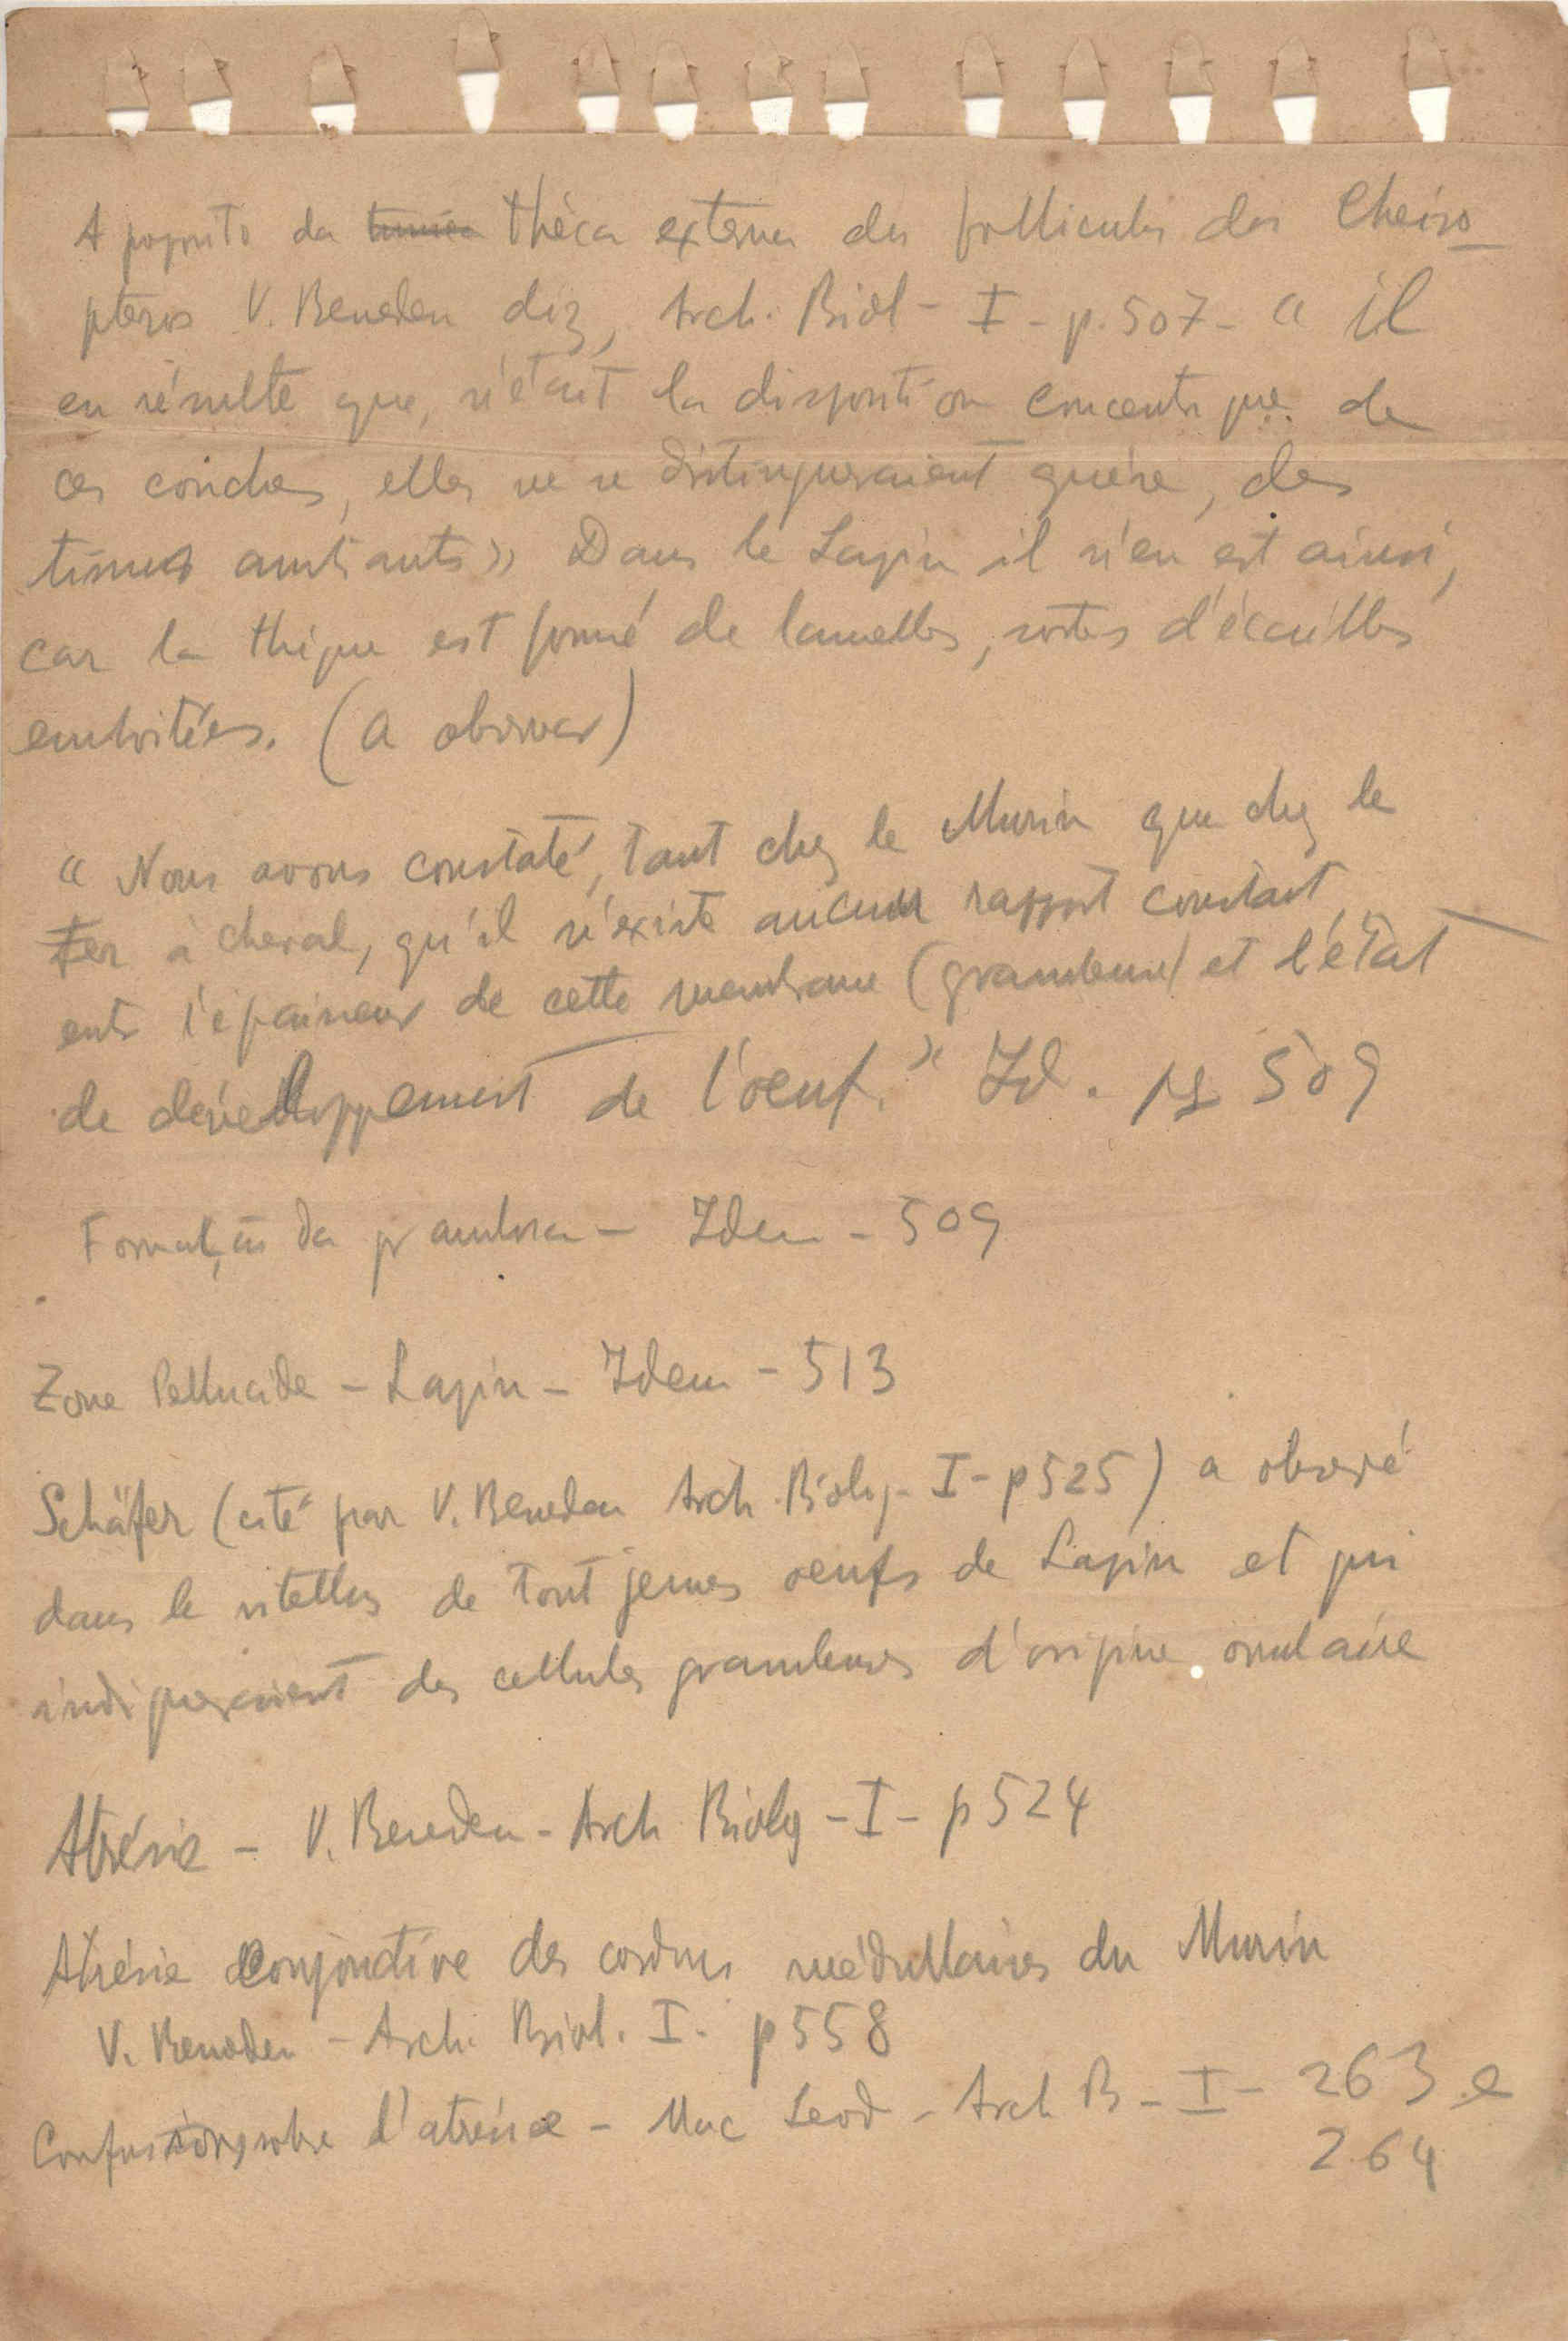 A proposito da tunica théca externa dos folliculos dos Cheiro
pteros V. Beneden diz, Arch. Biol - I - p. 507 - « il
en résulte que, n'était la disposition concentrique de
ces couches, elles ne se distingueraient guère, des
tissus ambiants » Dans le Lapin il n'en est ainsi,
car la thèque est formé de lamelles, sortes d'écailles
emboitées. (a observar)
« Nous avons constaté, tant chez le Murin que chez le
Fer à cheval, qu'il n'existe aucun rapport constant
entre l'épaisseur de cette membrane (granuleuse) et l'état
de développement de l'oeuf. » Id. pg 509
Formação da granulosa - Idem - 509
Zone Pellucide - Lapin - Idem - 513
Schäfer (cité par V. Beneden Arch. Biolog - I - p 525) a observé
dans le vitellus de tout jeunes oeufs de Lapin et qui
indiqueraient des cellules granuleuses d'origine ovulaire
Atrésie - V. Beneden - Arch Biolg - I - p 524
Atrésie conjonctive des cordons médullaires du Murin
V. Beneden - Arch. Biol. I. p 558
Confusions sobre l'atrésie - Mac Leod - Arch B - I - 263 e
264